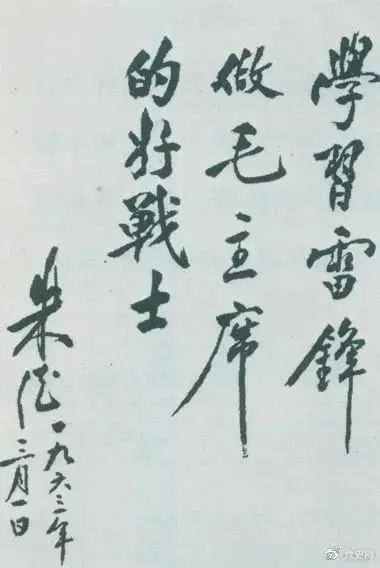 學習雷鋒
做毛主席
的好戰士
朱德
一九六三年
三月一日
党史网